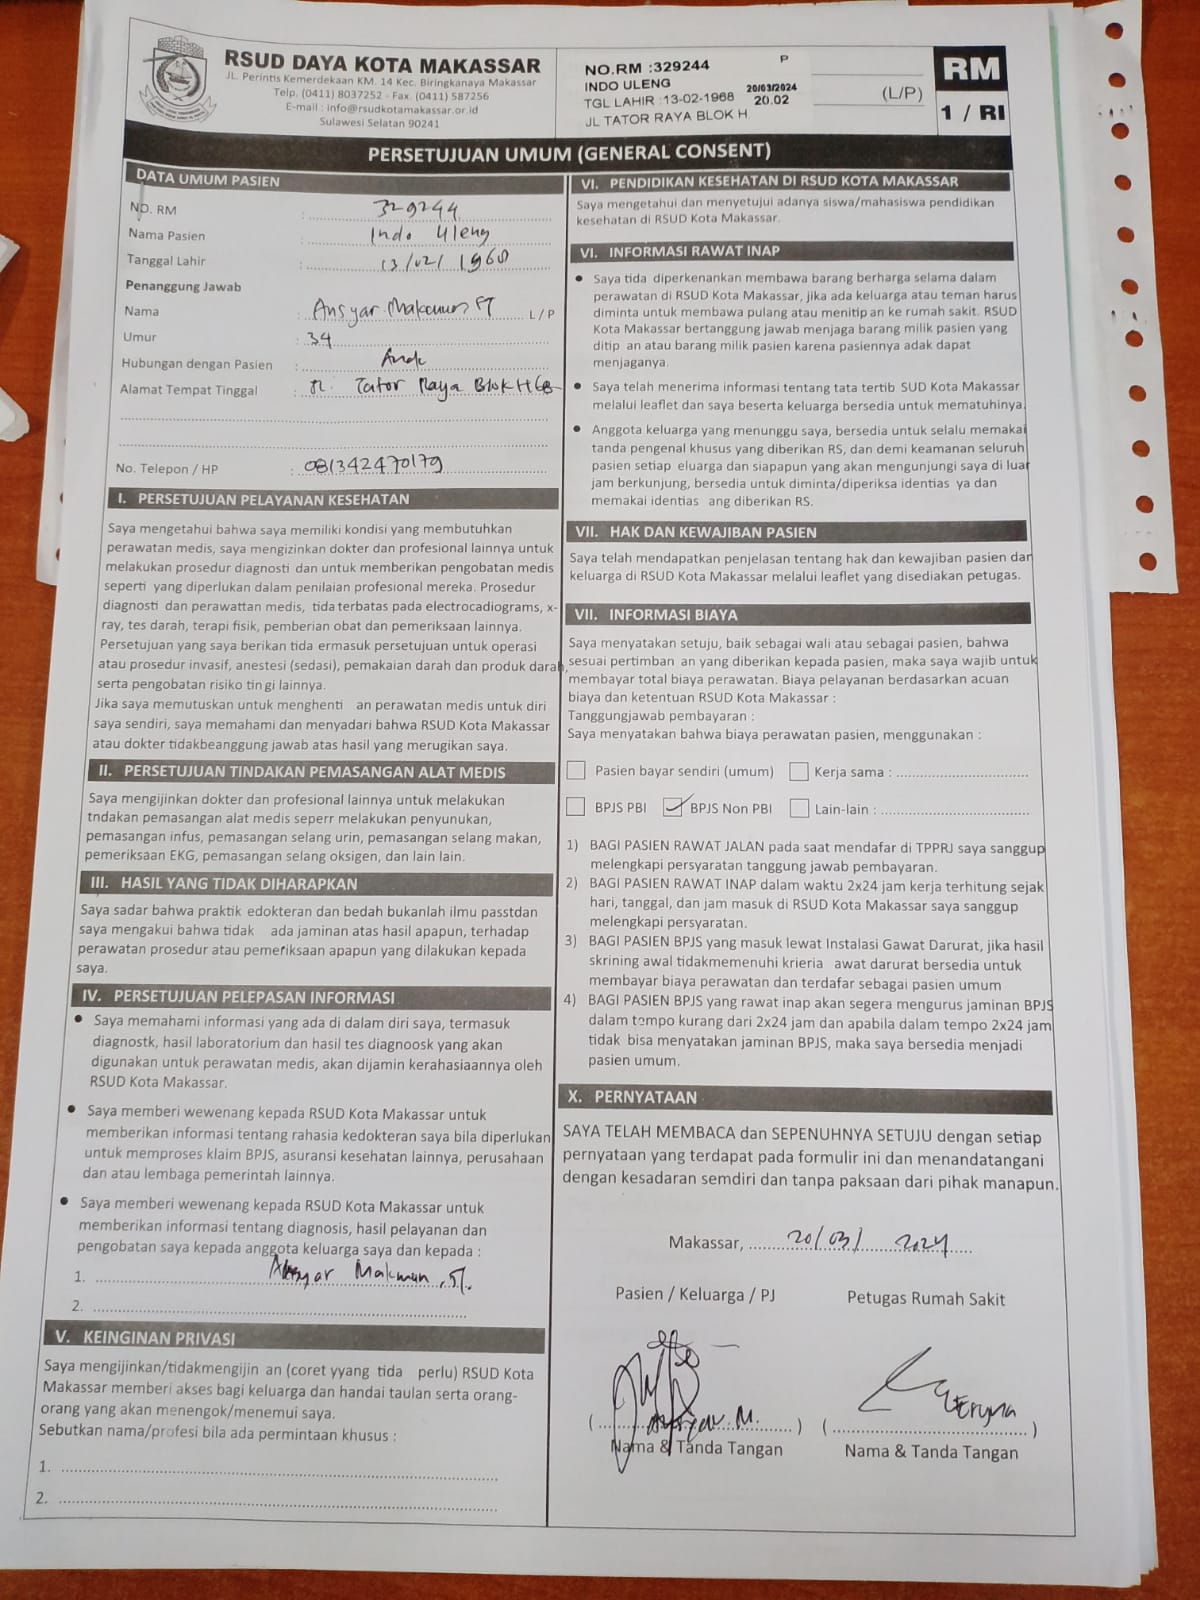 RSUD DAYA KOTA MAKASSAR
JL. Perintis Kemerdekaan KM. 14 Kec. Biringkanaya Makassar
Telp. (0411) 8037252 - Fax. (0411) 587256
E-mail : info@rsudkotamakassar.or.id
Sulawesi Selatan 90241
NO.RM :329244 P
INDO ULENG
TGL LAHIR :13-02-1968 20/03/2024 20.02
JL TATOR RAYA BLOK H
(L/P)
RM
1 / RI
PERSETUJUAN UMUM (GENERAL CONSENT)
DATA UMUM PASIEN
NO. RM : 329244
Nama Pasien : Indo Uleng
Tanggal Lahir : 13/02/ 1968
Penanggung Jawab
Nama : Ansyar Makmun ST L / P
Umur : 34
Hubungan dengan Pasien : Anak
Alamat Tempat Tinggal : Jl. Tator Raya Blok H
No. Telepon / HP : 081342470179
I. PERSETUJUAN PELAYANAN KESEHATAN
Saya mengetahui bahwa saya memiliki kondisi yang membutuhkan
perawatan medis, saya mengizinkan dokter dan profesional lainnya untuk
melakukan prosedur diagnosti dan untuk memberikan pengobatan medis
seperti yang diperlukan dalam penilaian profesional mereka. Prosedur
diagnosti dan perawattan medis, tida terbatas pada electrocadiograms, x-
ray, tes darah, terapi fisik, pemberian obat dan pemeriksaan lainnya.
Persetujuan yang saya berikan tida ermasuk persetujuan untuk operasi
atau prosedur invasif, anestesi (sedasi), pemakaian darah dan produk darah,
serta pengobatan risiko tin gi lainnya.
Jika saya memutuskan untuk menghenti an perawatan medis untuk diri
saya sendiri, saya memahami dan menyadari bahwa RSUD Kota Makassar
atau dokter tidakbeanggung jawab atas hasil yang merugikan saya.
II. PERSETUJUAN TINDAKAN PEMASANGAN ALAT MEDIS
Saya mengijinkan dokter dan profesional lainnya untuk melakukan
tndakan pemasangan alat medis seperr melakukan penyunukan,
pemasangan infus, pemasangan selang urin, pemasangan selang makan,
pemeriksaan EKG, pemasangan selang oksigen, dan lain lain.
III. HASIL YANG TIDAK DIHARAPKAN
Saya sadar bahwa praktik edokteran dan bedah bukanlah ilmu passtdan
saya mengakui bahwa tidak ada jaminan atas hasil apapun, terhadap
perawatan prosedur atau pemeriksaan apapun yang dilakukan kepada
saya.
IV. PERSETUJUAN PELEPASAN INFORMASI
• Saya memahami informasi yang ada di dalam diri saya, termasuk
diagnostk, hasil laboratorium dan hasil tes diagnoosk yang akan
digunakan untuk perawatan medis, akan dijamin kerahasiaannya oleh
RSUD Kota Makassar.
• Saya memberi wewenang kepada RSUD Kota Makassar untuk
memberikan informasi tentang rahasia kedokteran saya bila diperlukan
untuk memproses klaim BPJS, asuransi kesehatan lainnya, perusahaan
dan atau lembaga pemerintah lainnya.
• Saya memberi wewenang kepada RSUD Kota Makassar untuk
memberikan informasi tentang diagnosis, hasil pelayanan dan
pengobatan saya kepada anggota keluarga saya dan kepada :
1. Ansyar Makmun, ST.
2.
V. KEINGINAN PRIVASI
Saya mengijinkan/tidakmengijin an (coret yyang tida perlu) RSUD Kota
Makassar memberi akses bagi keluarga dan handai taulan serta orang-
orang yang akan menengok/menemui saya.
Sebutkan nama/profesi bila ada permintaan khusus :
1.
2.
VI. PENDIDIKAN KESEHATAN DI RSUD KOTA MAKASSAR
Saya mengetahui dan menyetujui adanya siswa/mahasiswa pendidikan
kesehatan di RSUD Kota Makassar.
VI. INFORMASI RAWAT INAP
• Saya tida diperkenankan membawa barang berharga selama dalam
perawatan di RSUD Kota Makassar, jika ada keluarga atau teman harus
diminta untuk membawa pulang atau menitip an ke rumah sakit. RSUD
Kota Makassar bertanggung jawab menjaga barang milik pasien yang
ditip an atau barang milik pasien karena pasiennya adak dapat
menjaganya.
• Saya telah menerima informasi tentang tata tertib SUD Kota Makassar
melalui leaflet dan saya beserta keluarga bersedia untuk mematuhinya.
• Anggota keluarga yang menunggu saya, bersedia untuk selalu memakai
tanda pengenal khusus yang diberikan RS, dan demi keamanan seluruh
pasien setiap eluarga dan siapapun yang akan mengunjungi saya di luar
jam berkunjung, bersedia untuk diminta/diperiksa identias ya dan
memakai identias ang diberikan RS.
VII. HAK DAN KEWAJIBAN PASIEN
Saya telah mendapatkan penjelasan tentang hak dan kewajiban pasien dan
keluarga di RSUD Kota Makassar melalui leaflet yang disediakan petugas.
VII. INFORMASI BIAYA
Saya menyatakan setuju, baik sebagai wali atau sebagai pasien, bahwa
sesuai pertimban an yang diberikan kepada pasien, maka saya wajib untuk
membayar total biaya perawatan. Biaya pelayanan berdasarkan acuan
biaya dan ketentuan RSUD Kota Makassar :
Tanggungjawab pembayaran :
Saya menyatakan bahwa biaya perawatan pasien, menggunakan :
Pasien bayar sendiri (umum) Kerja sama :
BPJS PBI BPJS Non PBI Lain-lain :
1) BAGI PASIEN RAWAT JALAN pada saat mendafar di TPPRJ saya sanggup
melengkapi persyaratan tanggung jawab pembayaran.
2) BAGI PASIEN RAWAT INAP dalam waktu 2x24 jam kerja terhitung sejak
hari, tanggal, dan jam masuk di RSUD Kota Makassar saya sanggup
melengkapi persyaratan.
3) BAGI PASIEN BPJS yang masuk lewat Instalasi Gawat Darurat, jika hasil
skrining awal tidakmemenuhi krieria awat darurat bersedia untuk
membayar biaya perawatan dan terdafar sebagai pasien umum
4) BAGI PASIEN BPJS yang rawat inap akan segera mengurus jaminan BPJS
dalam tempo kurang dari 2x24 jam dan apabila dalam tempo 2x24 jam
tidak bisa menyatakan jaminan BPJS, maka saya bersedia menjadi
pasien umum.
X. PERNYATAAN
SAYA TELAH MEMBACA dan SEPENUHNYA SETUJU dengan setiap
pernyataan yang terdapat pada formulir ini dan menandatangani
dengan kesadaran semdiri dan tanpa paksaan dari pihak manapun.
Makassar, 20/03/ 2024
Pasien / Keluarga / PJ Petugas Rumah Sakit
( Ansyar M. ) ( )
Nama & Tanda Tangan Nama & Tanda Tangan